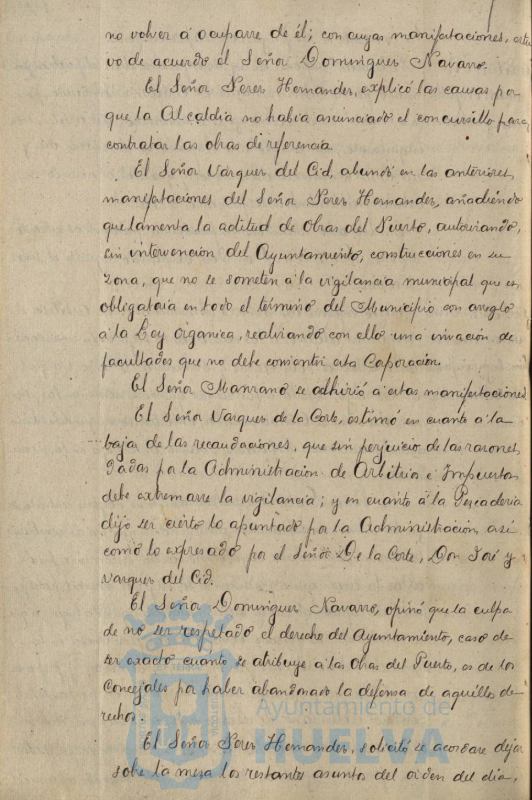 no volver á ocuparse de él; con cuyas manifestaciones, estu
vo de acuerdo el Señor Dominguez Navarro.
El Señor Perez Hernandez, explicó las causas por
que la Alcaldia no habia anunciado el concursillo para
contratar las obras de referencia.
El Señor Vazquez del Cid, abundó en las anteriores
manifestaciones del Señor Perez Hernandez, añadiendo
que lamenta la actitud de Obras del Puerto, autorizando,
sin intervencion del Ayuntamiento, construcciones en su
zona, que no se someten á la vigilancia municipal que es
obligatoria en todo el término del Municipio con arreglo
á la Ley Organica, realizando con ello una invacion de
facultades que no debe consentir esta Coporacion.
El Señor Manzano se adhirió á estas manifestaciones.
El Señor Vazquez de la Corte, estimó en cuanto á la
baja de las recaudaciones, que sin perjuicio de las razones
dadas por la Administracion de Arbitrios é Impuestos
debe extremarse la vigilancia; y en cuanto á la Pescaderia
dijo ser cierto lo apuntado por la Administración, asi
como lo expresado por el Señor De la Corte, Don José y
Vazquez del Cid.
El Señor Dominguez Navarro, opinó que la culpa
de no ser respetado el derecho del Ayuntamiento, caso de
ser exacto cuanto se atribuye á las Obras del Puerto, es de los
Concejales por haber abandonado la defensa de aquéllos de
rechos.
Ayuntamiento de
HUELVA
El Señor Perez Hernandez, solicitó se acordase dejar
sobre la mesa los restantes asuntos del orden del dia,